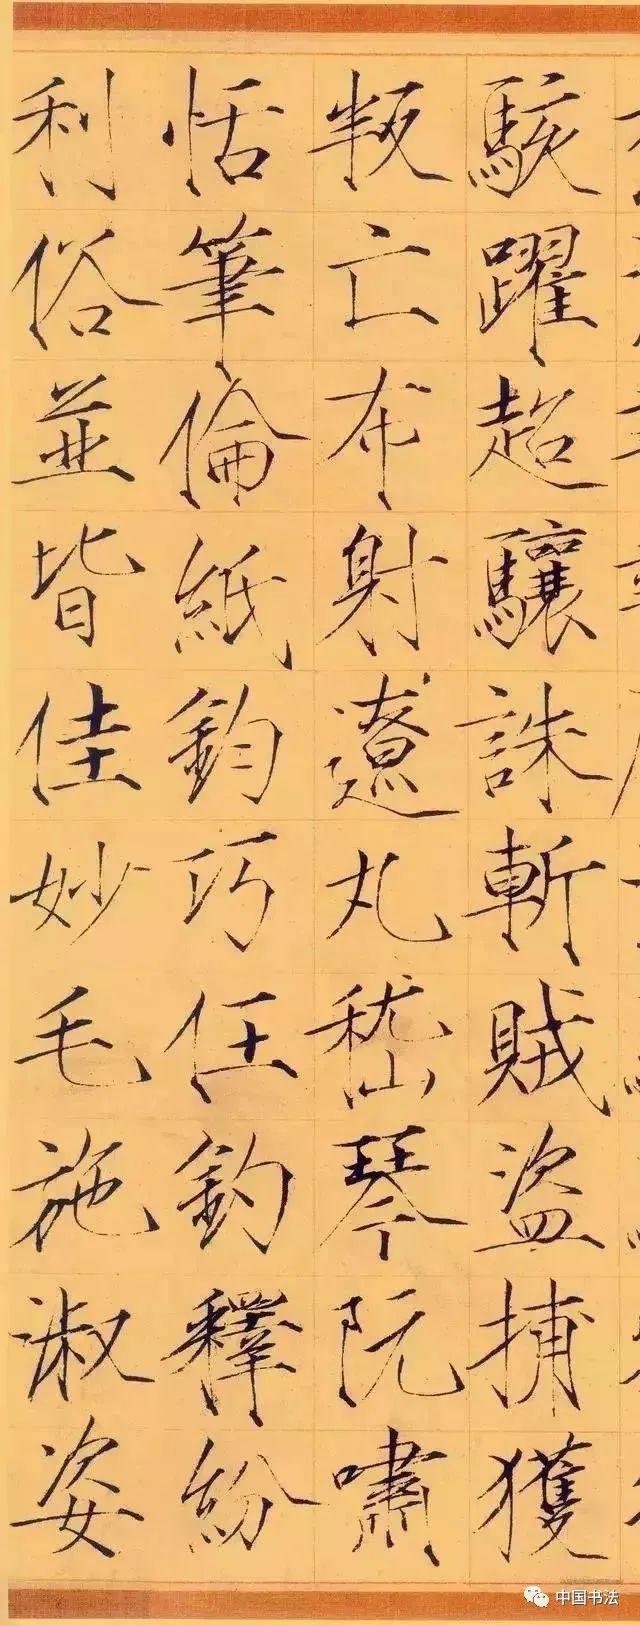 駭躍超驤誅斬賊盜捕獲
叛亡布射遼丸嵇琴阮嘯
恬筆倫紙鈞巧任釣釋紛
利俗並皆佳妙毛施淑姿
中国书法